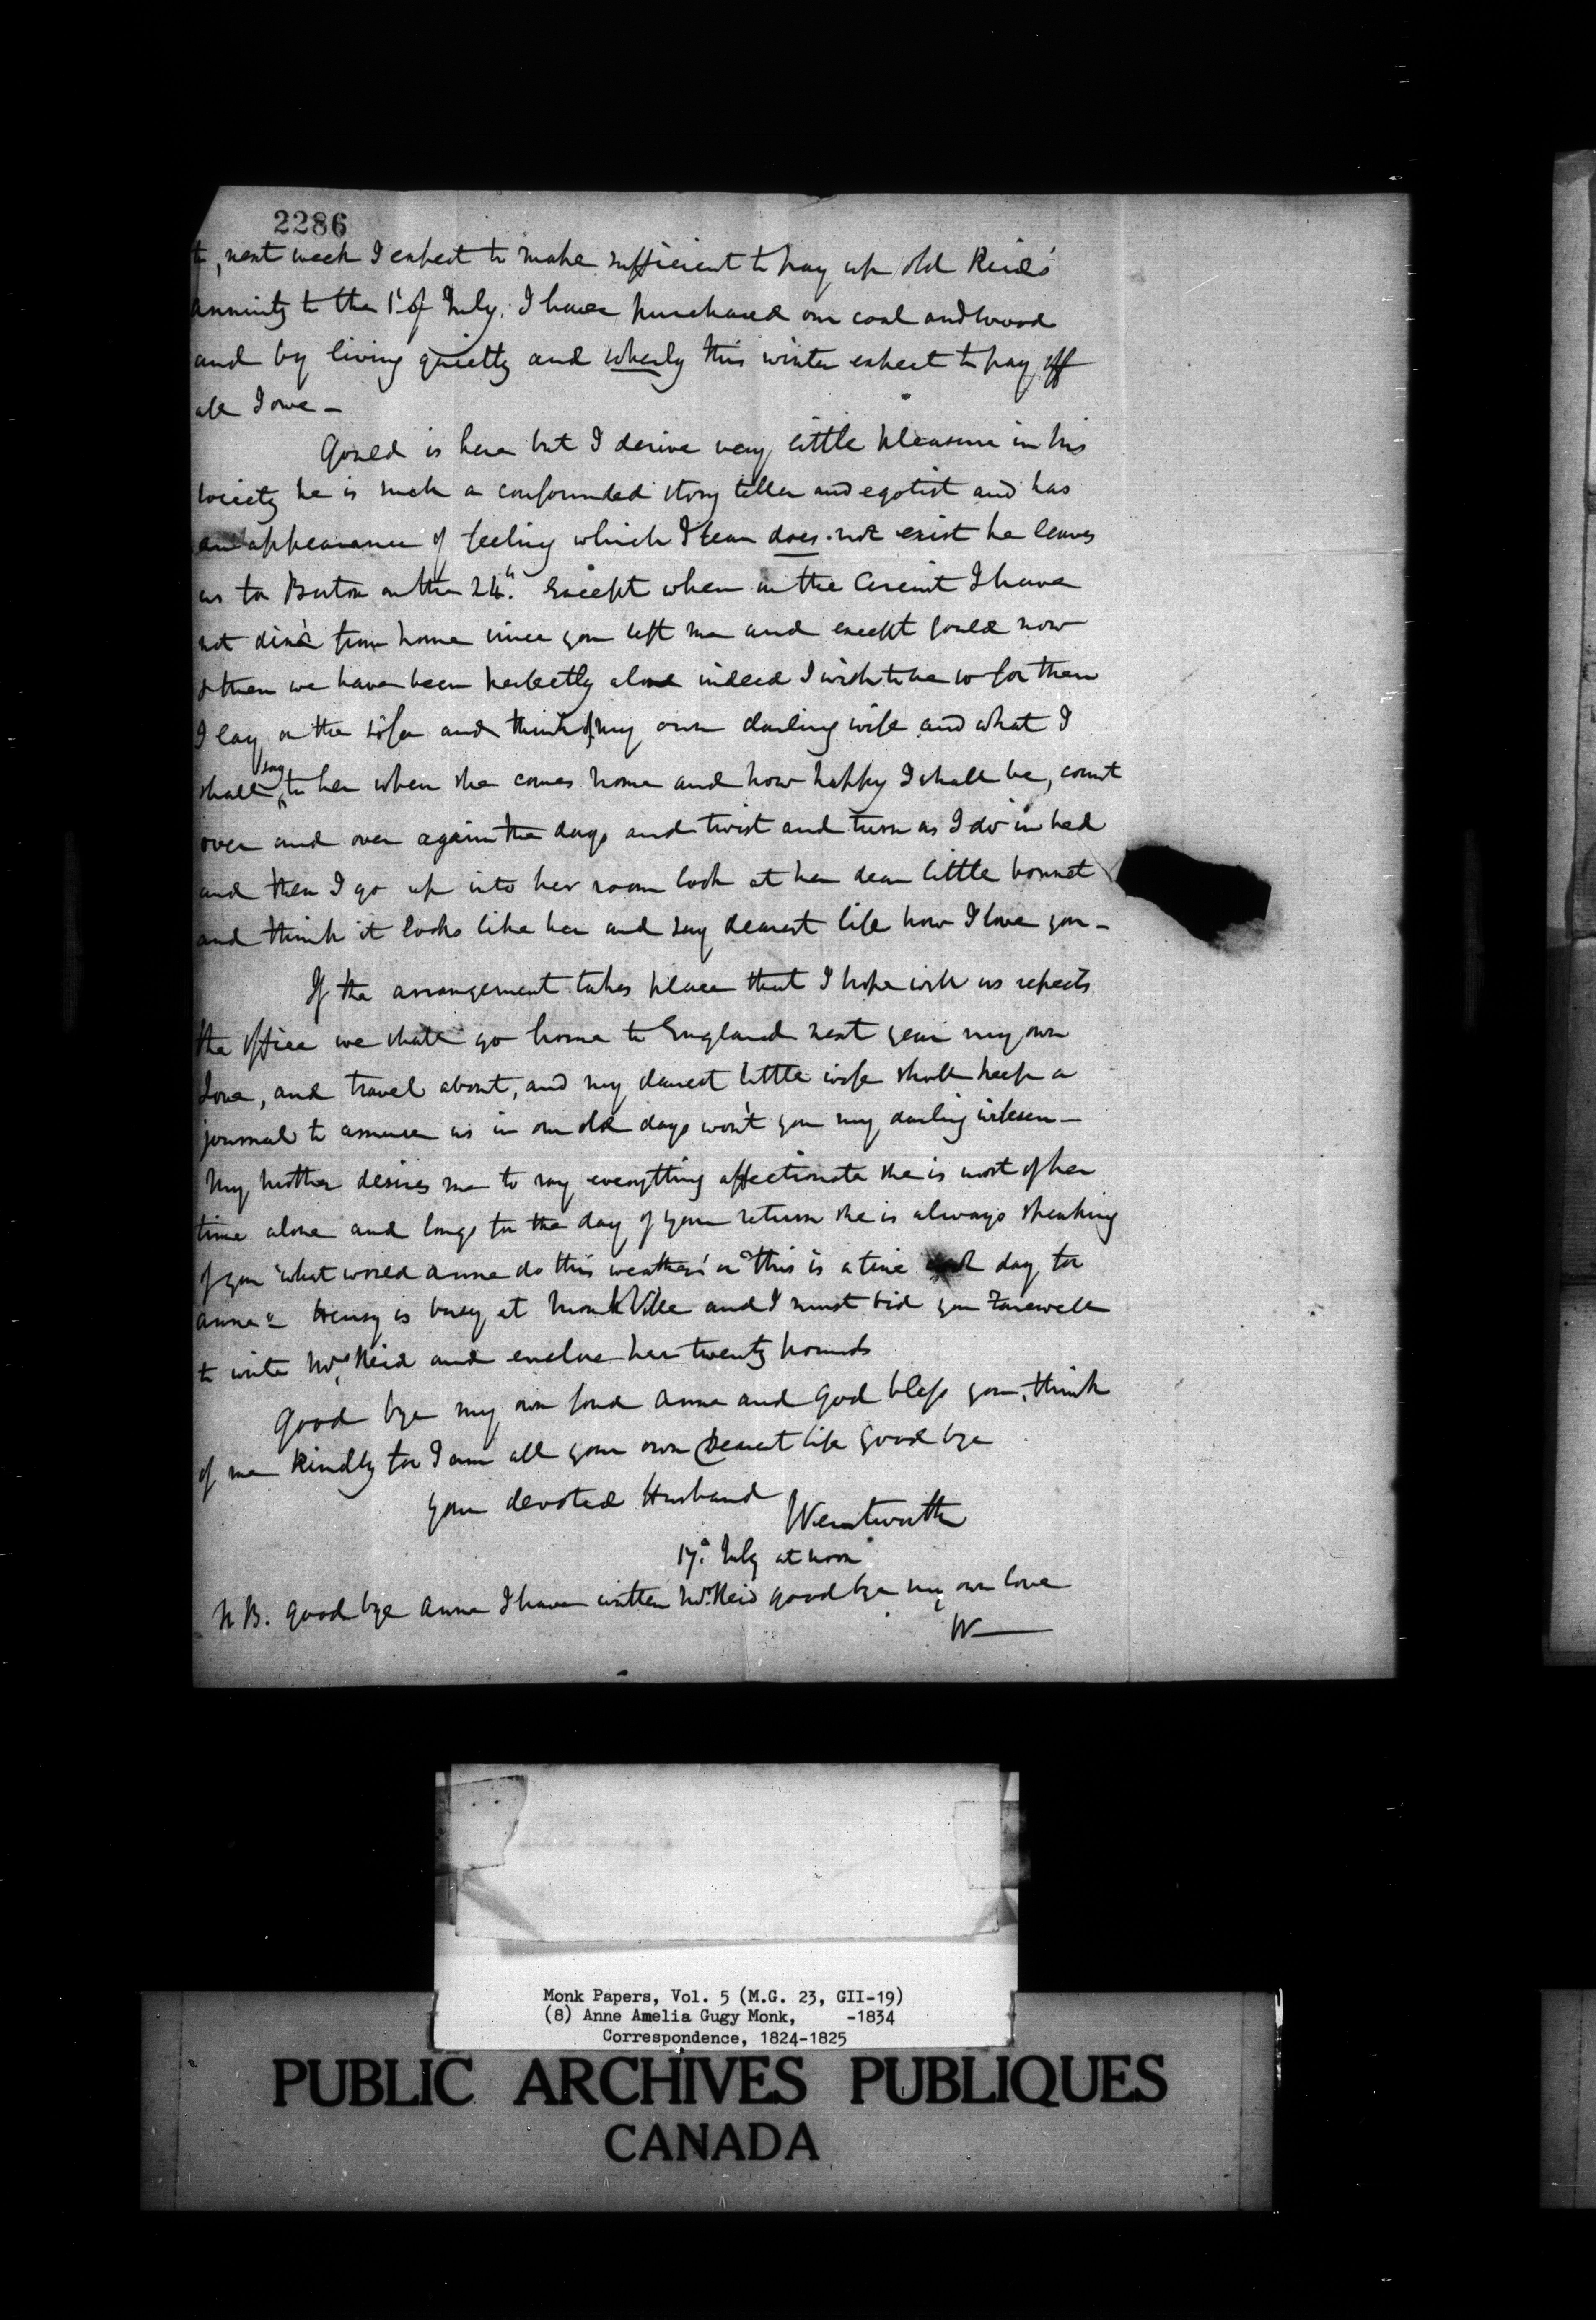 2286
to, next week I expect to make sufficient to pay up old Reid's
annuity to the 1st of July. I have purchased our coal and wood
and by living quietly and this winter expect to pay off
all I owe —
Gould is here but I derive very little pleasure in his
society he is such a confounded story teller and egotist and has
an appearance of feeling which I fear does not exist he leaves
us for on the 24th. Except when on the Circuit I have
not din'd from home since you left me and except Gould now
& then we have been perfectly alone indeed I wish to be so for then
I lay on the sofa and think of my own darling wife and what I
shall say to her when she comes home and how happy I shall be, count
over and over again the days and twist and turn as I do in bed
and then I go up into her room look at her dear little bonnet
and think it looks like her and say dearest life how I love you —
If the arrangement takes place that I hope will as respects
the office we shall go home to England next year my own
Love, and travel about, and my dearest little wife shall keep a
journal to amuse us in our old days won't you my darling
My Mother desires me to say everything affectionate she is most of her
time alone and longs for the day of your return she is always speaking
of you "what would Anne do this weather" or "this is a fine day for
Anne" — Henry is busy at MonkVille and I must bid you Farewell
to write Mrs. Reid and enclose her twenty pounds
Good bye my own fond Anne and God bless you, think
of me kindly for I am all your own Dearest life Good bye
your devoted Husband
Wentworth
17th July at noon
N B. Good bye Anne I have written Mrs. Reid good bye my own love
W —
Monk Papers, Vol. 5 (M.G. 23, GII-19)
(8) Anne Amelia Gugy Monk, -1834
Correspondence, 1824-1825
PUBLIC ARCHIVES PUBLIQUES
CANADA